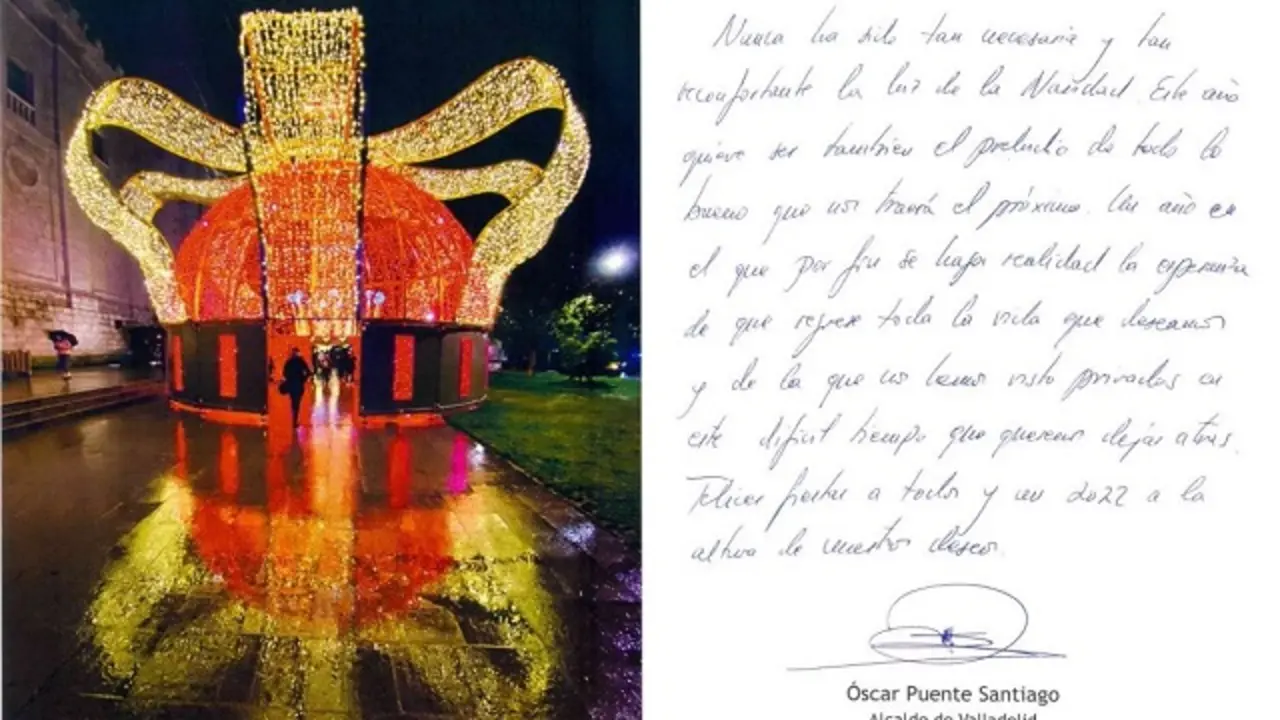 Nunca ha sido tan necesaria y tan
reconfortante la luz de la Navidad. Este año
quiere ser también el preludio de todo lo
bueno que nos traerá el próximo. Un año en
el que por fin se haga realidad la esperanza
de que regrese toda la vida que deseamos
y de la que nos hemos visto privados en
este difícil tiempo que queremos dejar atrás.
Felices fiestas a todos y un 2022 a la
altura de nuestros deseos.
Óscar Puente Santiago
Alcalde de Valladolid